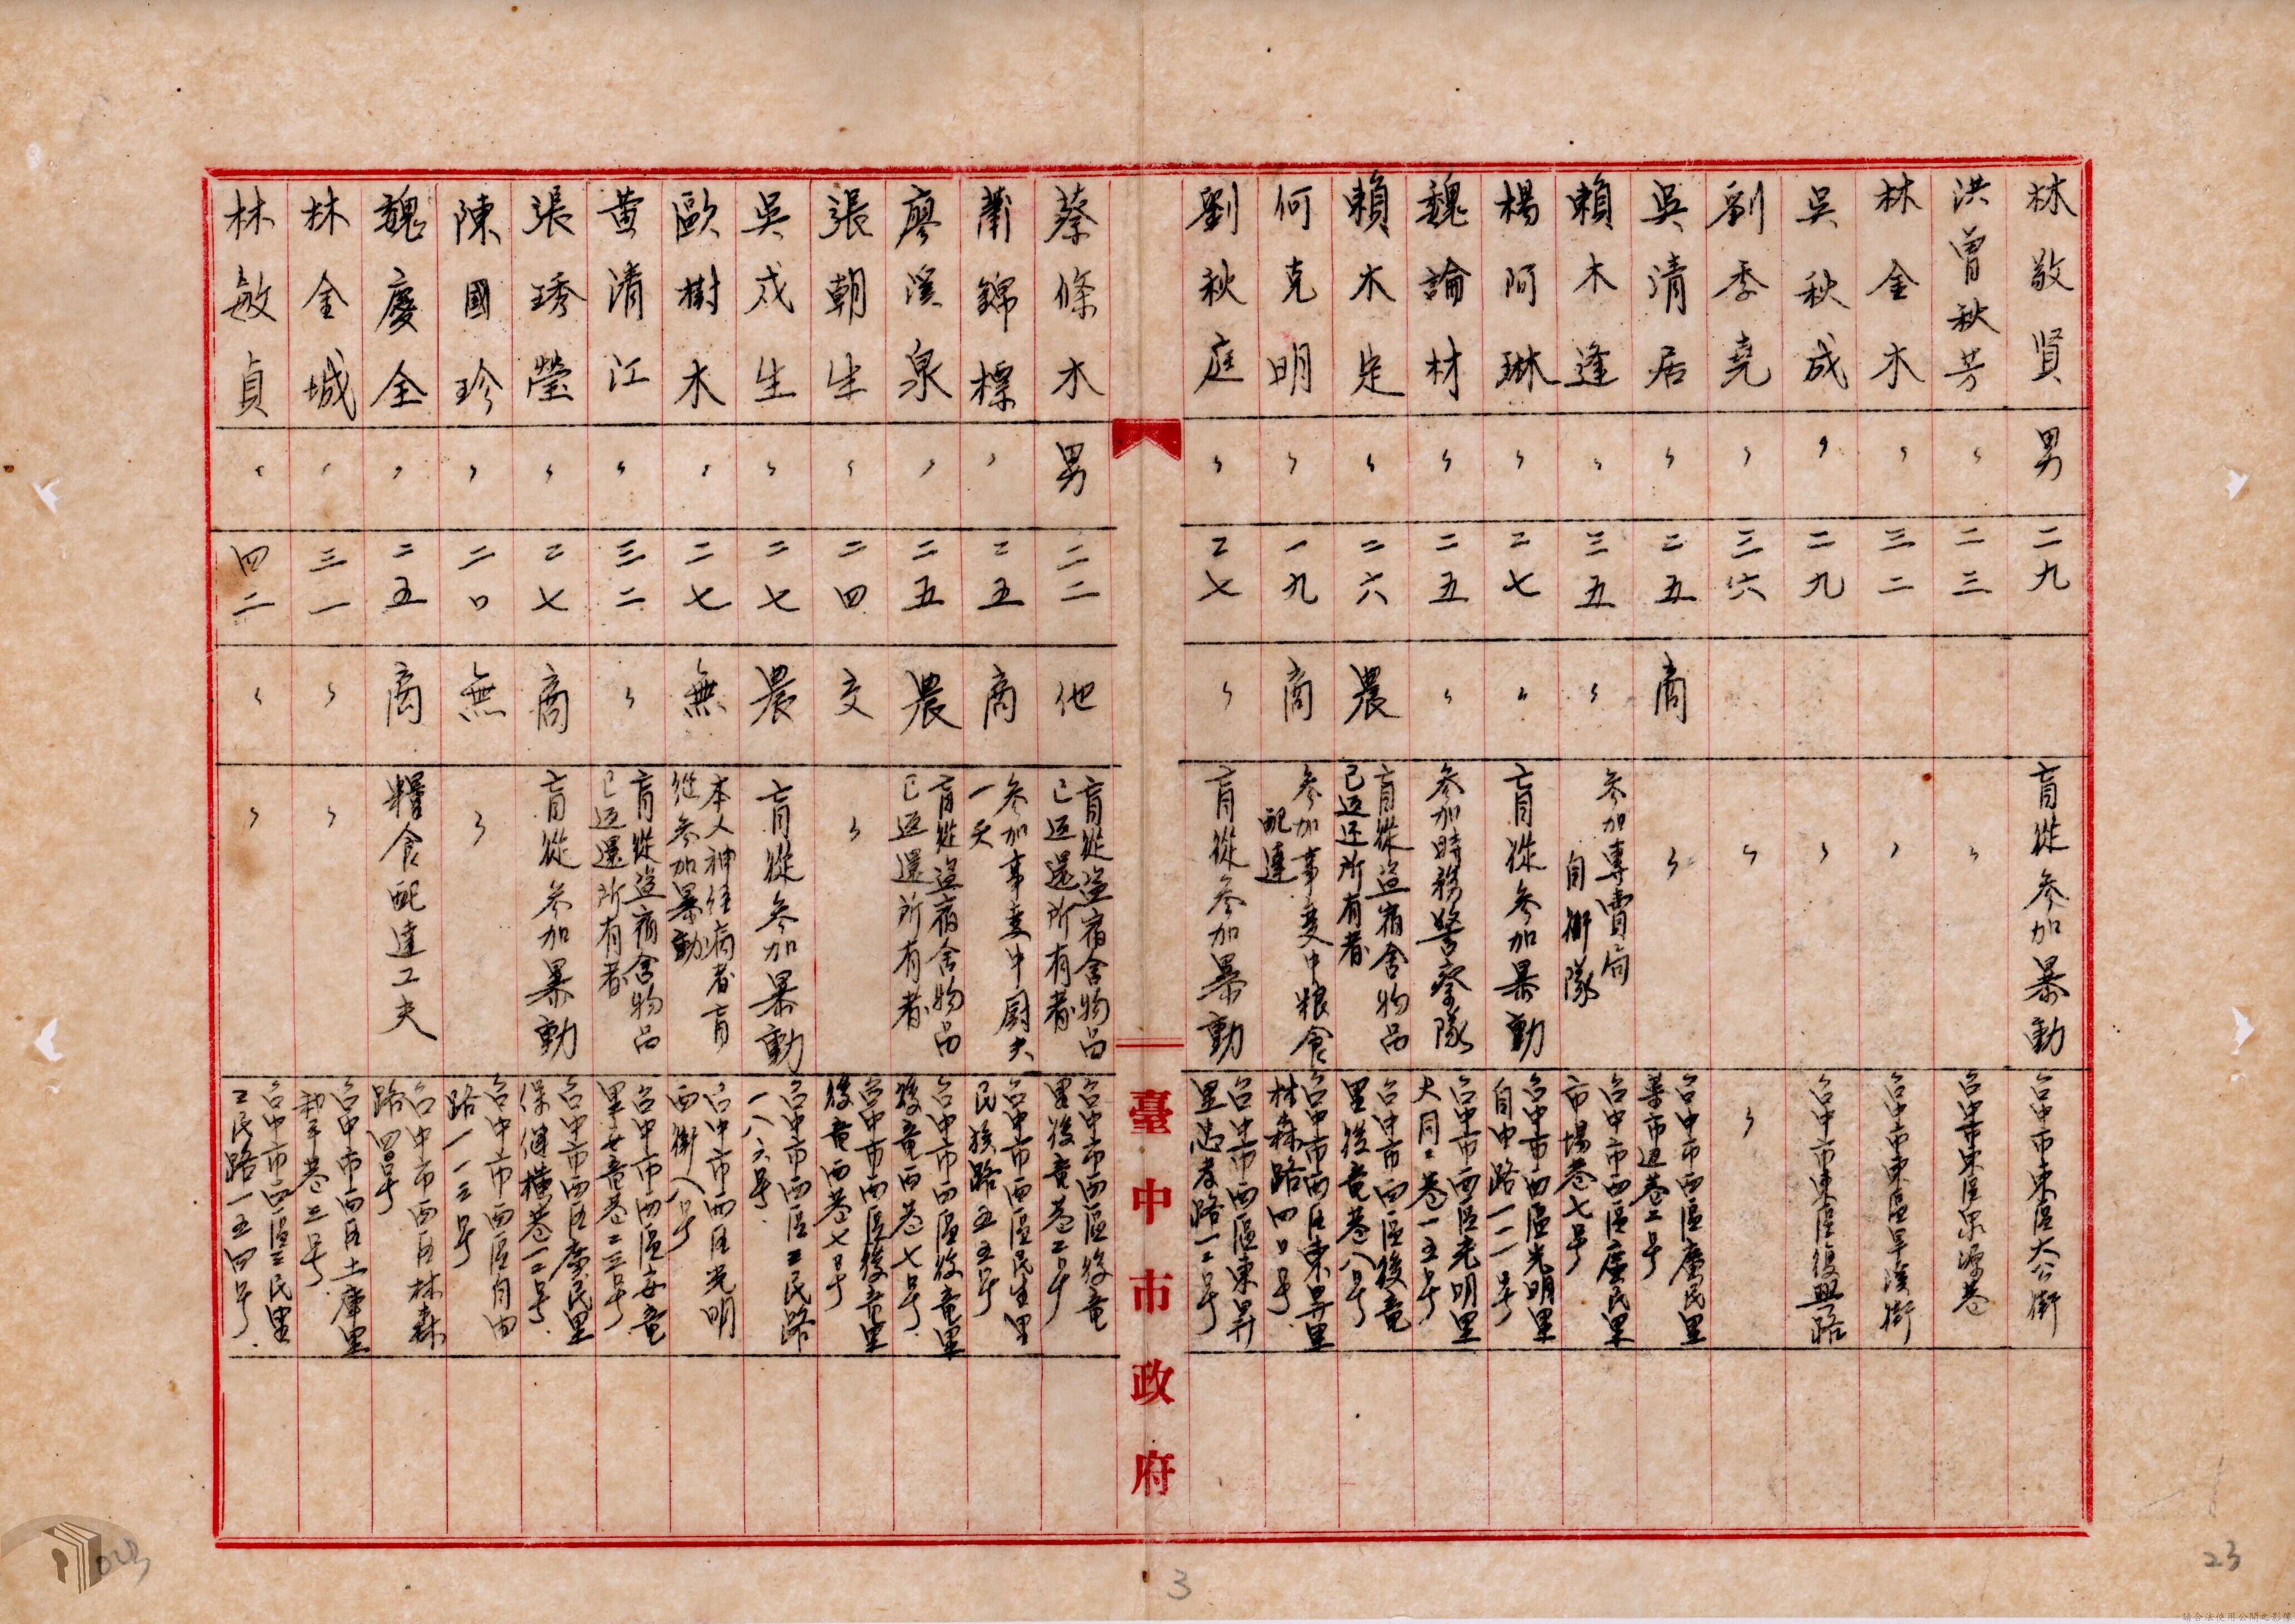 林敬賢 男 二九 盲從參加暴動 台中市東區大公街
洪曾秋芳 〃 二三 〃 台中市東區泉源巷
林金水 〃 三二 〃 台中市東區旱溪街
吳秋成 〃 二九 〃 台中市東區復興路
劉季堯 〃 三六 〃 〃
吳清居 〃 二五 商 〃 台中市西區廣民里
菜市邊巷二号
賴木逢 〃 三五 〃 參加專賣局
自衛隊 台中市西區廣民里
市場巷七号
楊阿琳 〃 二七 〃 盲從參加暴動 台中市西區光明里
自由路一二一号
魏論材 〃 二五 〃 參加時務警察隊 台中市西區光明里
大同二巷一五号
賴木定 〃 二六 農 盲從盜宿舍物品
已返还所有者 台中市西區後竜
里後竜巷八号
何克明 〃 一九 商 參加事变中粮食
配達 台中市西區東昇里
林森路四〇号
劉秋庭 〃 二七 〃 盲從參加暴動 台中市西區東昇
里忠孝路一二号
臺中市政府
蔡條木 男 二二 他 盲從盜宿舍物品
已返還所有者 台中市西區後竜
里後竜巷二号
蕭錦標 〃 二五 商 參加事变中厨夫
一天 台中市西區民生里
民族路五五号
廖溪泉 〃 二五 農 盲從盜宿舍物品
已返還所有者 台中市西區後竜里
後竜西巷七号
張朝生 〃 二四 交 〃 台中市西區後竜里
後竜西巷七号
吳成生 〃 二七 農 盲從參加暴動 台中市西區三民路
一八六号
歐樹木 〃 二七 無 本人神経病者盲
從參加暴動 台中市西區光明
西街八号
黃清江 〃 三二 〃 盲從盜宿舍物品
已返還所有者 台中市西區安竜
里安竜巷二三号
張琇瑩 〃 二七 商 盲從參加暴動 台中市西區廣民里
保健橫巷一二号
陳國珍 〃 二〇 無 〃 台中市西區自由
路一一三号
魏慶全 〃 二五 商 糧食配達工夫 台中市西區林森
路四号
林金城 〃 三一 〃 〃 台中市西區土庫里
和平巷三号
林敏貞 〃 四二 〃 〃 台中市西區三民里
三民路一五四号
3
23